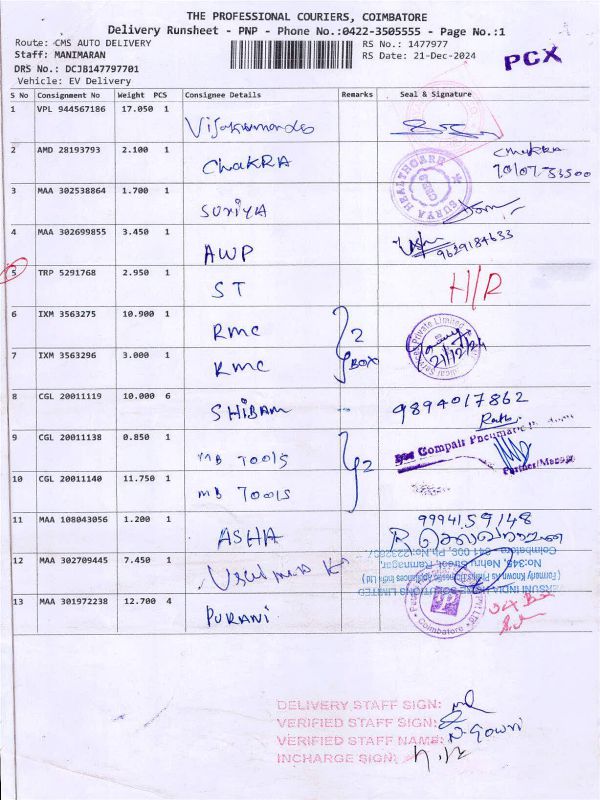 THE PROFESSIONAL COURIERS, COIMBATORE
Delivery Runsheet - PNP - Phone No.:0422-3505555 - Page No.:1
Route: CMS AUTO DELIVERY RS No.: 1477977
Staff: MANIMARAN RS Date: 21-Dec-2024
PCX
DRS No.: DCJB147797701
Vehicle: EV Delivery
S No Consignment No Weight PCS Consignee Details Remarks Seal & Signature
1 VPL 944567186 17.050 1
2 AMD 28193793 2.100 1 ChaKRA Chakra
SURYA HEALTHCARE
3 MAA 302538864 1.700 1 SURIYA
4 MAA 302699855 3.450 1 AWP 9629184633
5 TRP 5291768 2.950 1 ST H/R
6 IXM 3563275 10.900 1 RMC 2
7 IXM 3563296 3.000 1 RMC BOX 21/12/24
8 CGL 20011119 10.000 6 SHIBAM 9894017862
9 CGL 20011138 0.850 1 MB TOOLS 2 Compair Pneumatic
10 CGL 20011140 11.750 1 MB TOOLS
11 MAA 108043056 1.200 1 ASHA 9994159148
12 MAA 302709445 7.450 1
No:349, Nehru Street, Ramnagar,
13 MAA 301972238 12.700 4 PURANI Coimbatore
DELIVERY STAFF SIGN:
VERIFIED STAFF SIGN:
VERIFIED STAFF NAME: N.Gowri
INCHARGE SIGN: